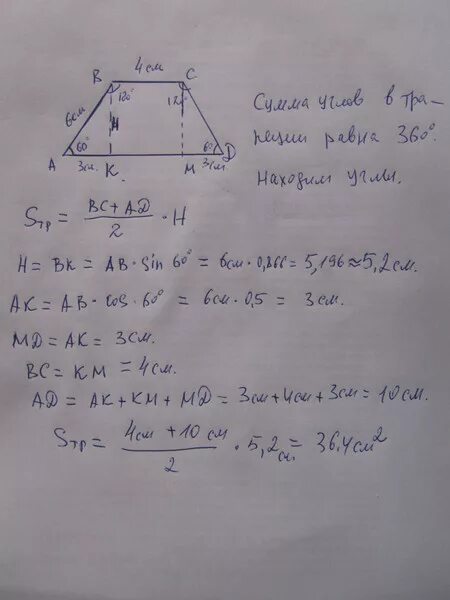 4 см
B C
6см 120° 120°
H
60° 60°
A 3см. K. M 3см. D
Сумма углов в тра-
пеции равна 360°.
Находим углы.
Sтр = (BC + AD)/2 · H
H = BK = AB · sin 60° = 6см · 0,866 = 5,196 ≈ 5,2 см.
AK = AB · cos · 60° = 6см · 0,5 = 3см.
MD = AK = 3см.
BC = KM = 4см.
AD = AK + KM + MD = 3см + 4см + 3см = 10см.
Sтр = (4см + 10 см)/2 · 5,2 см = 36.4см²